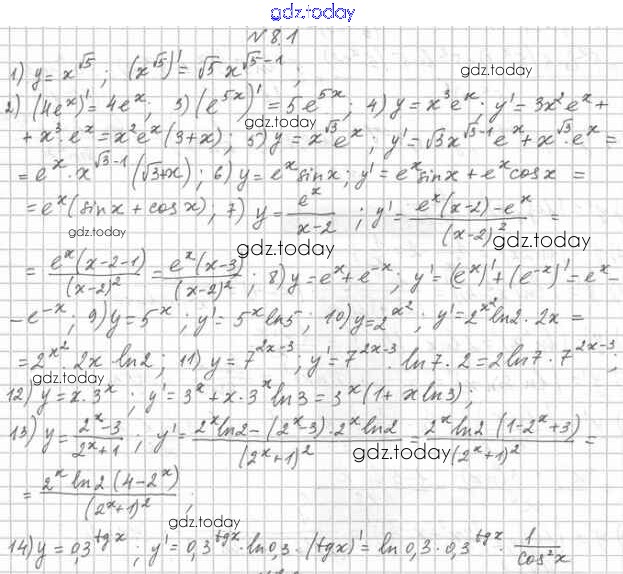 gdz.today
№ 8.1
1) y = x^√5 ; (x^√5)' = √5 x^(√5-1) ;
gdz.today
2) (4e^x)' = 4e^x; 3) (e^(5x))' = 5e^(5x); 4) y = x³e^x; y' = 3x²e^x +
+ x³·e^x = x²e^x(3+x); 5) y = x^√3 e^x; y' = √3x^(√3-1)e^x + x^√3·e^x =
gdz.today
= e^x · x^(√3-1)(√3+x); 6) y = e^x sin x; y' = e^x sin x + e^x cos x =
= e^x(sin x + cos x); 7) y = e^x/(x-2) ; y' = (e^x(x-2) - e^x)/(x-2)² =
gdz.today
gdz.today
gdz.today
= e^x(x-2-1)/(x-2)² = e^x(x-3)/(x-2)² ; 8) y = e^x + e^(-x); y' = (e^x)' + (e^(-x))' = e^x -
- e^(-x); 9) y = 5^x; y' = 5^x ln5; 10) y = 2^(x²); y' = 2^(x²) ln2 · 2x =
= 2^(x²) · 2x · ln2; 11) y = 7^(2x-3); y' = 7^(2x-3) · ln7 · 2 = 2ln7 · 7^(2x-3);
gdz.today
12) y = x · 3^x ; y' = 3^x + x · 3^x ln3 = 3^x(1 + x ln3);
13) y = (2^x-3)/(2^x+1) ; y' = (2^x ln2 - (2^x-3)·2^x ln2)/(2^x+1)² = 2^x ln2 (1-2^x+3)/(2^x+1)² =
gdz.today
= 2^x ln2 (4-2^x)/(2^x+1)² ;
gdz.today
14) y = 0,3^(tgx) ; y' = 0,3^(tgx) · ln0,3 · (tgx)' = ln0,3 · 0,3^(tgx) · 1/cos²x